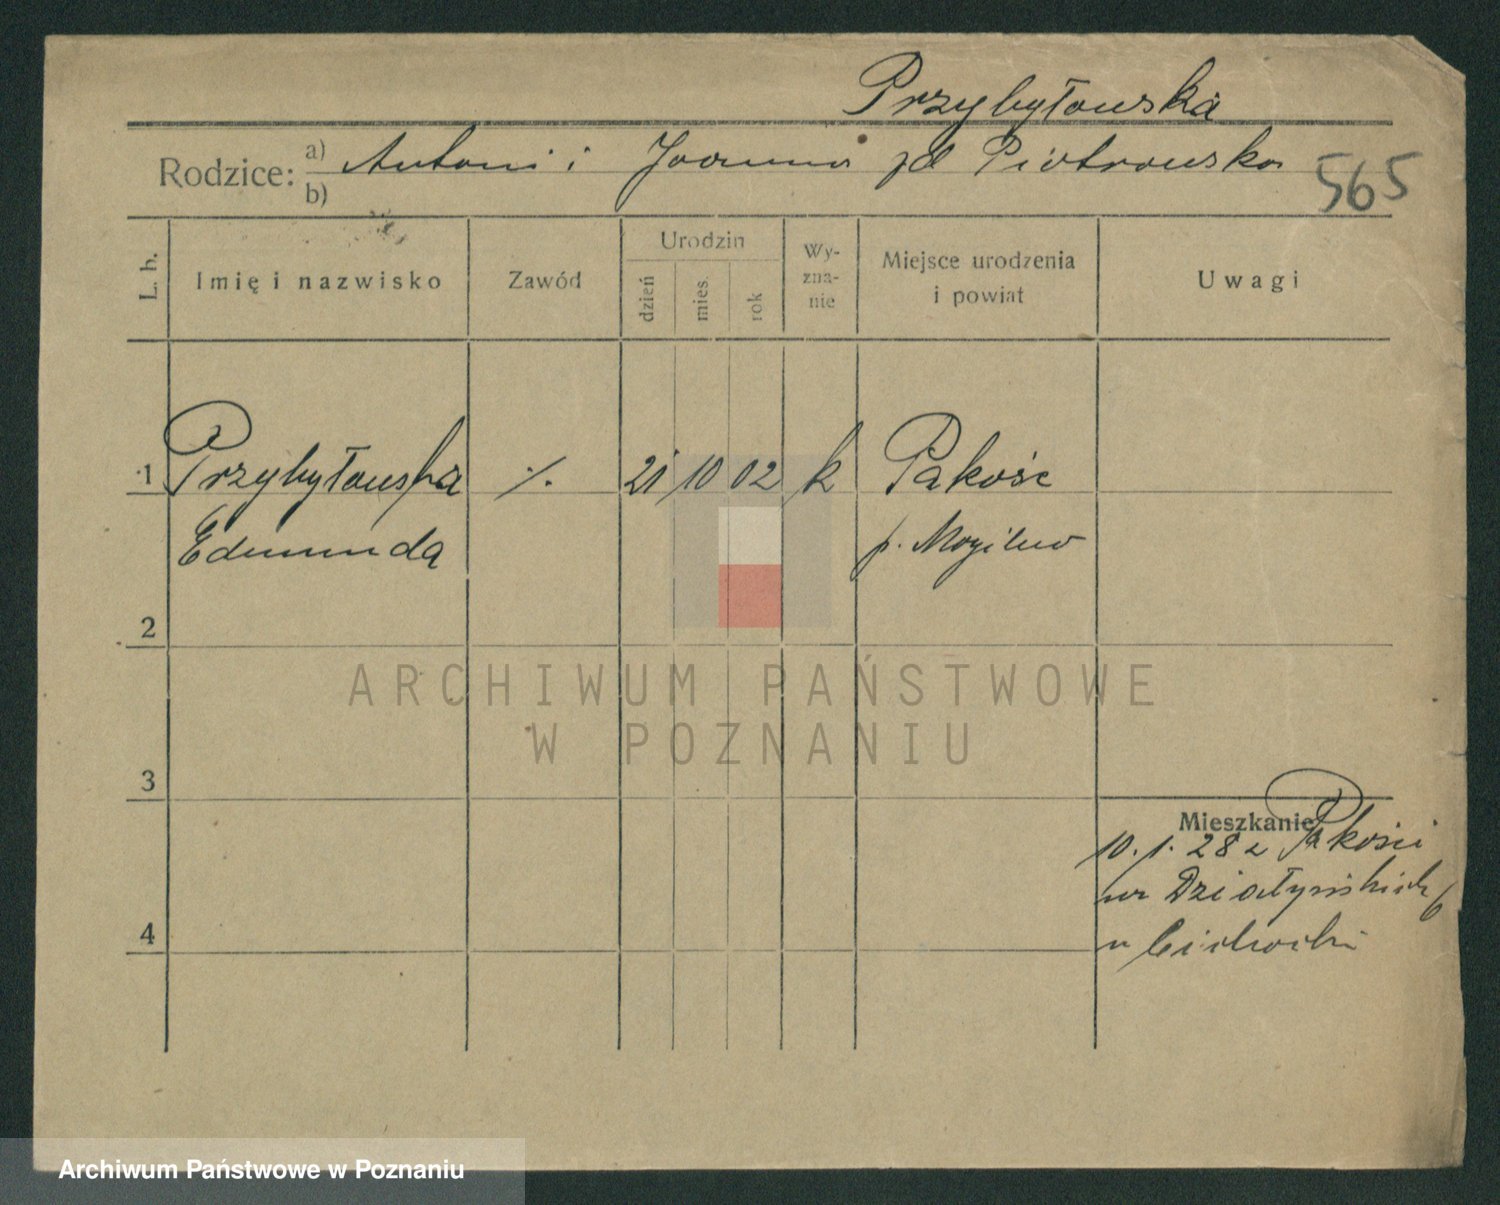 Przybyłowska
Rodzice: a) Antoni i Joanna zd Piotrowska
b)
565
L. b.
Imię i nazwisko
Zawód
Urodzin
dzień
mies.
rok
Wy-
zna-
nie
Miejsce urodzenia
i powiat
Uwagi
1 Przybyłowska ./. 21 10 02 k Pakość
Edmunda p. Mogilno
2
ARCHIWUM PAŃSTWOWE
W POZNANIU
3
Mieszkanie
10.1.28 z Pakości
Działyńskich 6
4
u
Archiwum Państwowe w Poznaniu